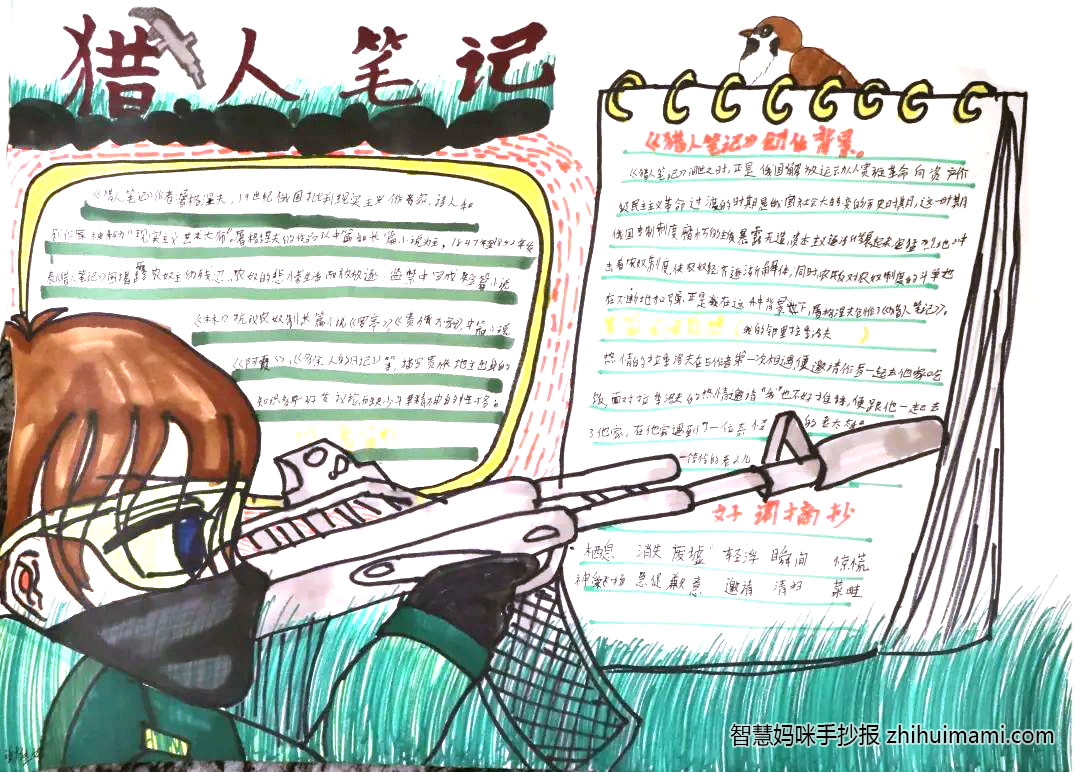 猎人笔记
《猎人笔记》作者屠格涅夫，19世纪俄国批判现实主义作家，诗人和
剧作家被称为"现实主义艺术大师"。屠格涅夫的作品以中篇和长篇小说为主，1847年至1852年发
表《猎人笔记》揭露农奴主的残忍，农奴的悲惨生活而被放逐，监禁中写成短篇小说
《木木》抗议农奴制长篇小说《罗亭》《贵族之家》中篇小说
《阿霞》、《多余人的日记》等，描写贵族地主出身的
知识分子好发议论而缺少斗争精神的性格。
《猎人笔记》创作背景。
《猎人笔记》问世之时，正是俄国解放运动从贵族革命向资产阶
级民主主义革命过渡的时期是俄国社会大转变的历史时期，这一时期
俄国专制制度
出著农奴制度，使农奴经济逐渐解体，同时农民对农奴制度的斗争也
在不断地加强，正是就在这种背景如下，屠格涅夫创作了《猎人笔记》。
(我的邻里拉季洛夫
热情的拉季洛夫在与作者第一次相遇，便邀请作者一起去他家吃
饭，面对拉季洛夫的热情邀请"我"也不好推辞，便跟他一起去
了他家，在他家遇到了一位奇怪 的老太
的老人
好词摘抄
栖息 消失 废墟 轻浮 瞬间 惊慌
神采飞扬 急促 歉意 邀请 清好 菜畦
智慧妈咪手抄报 zhihuimami.com